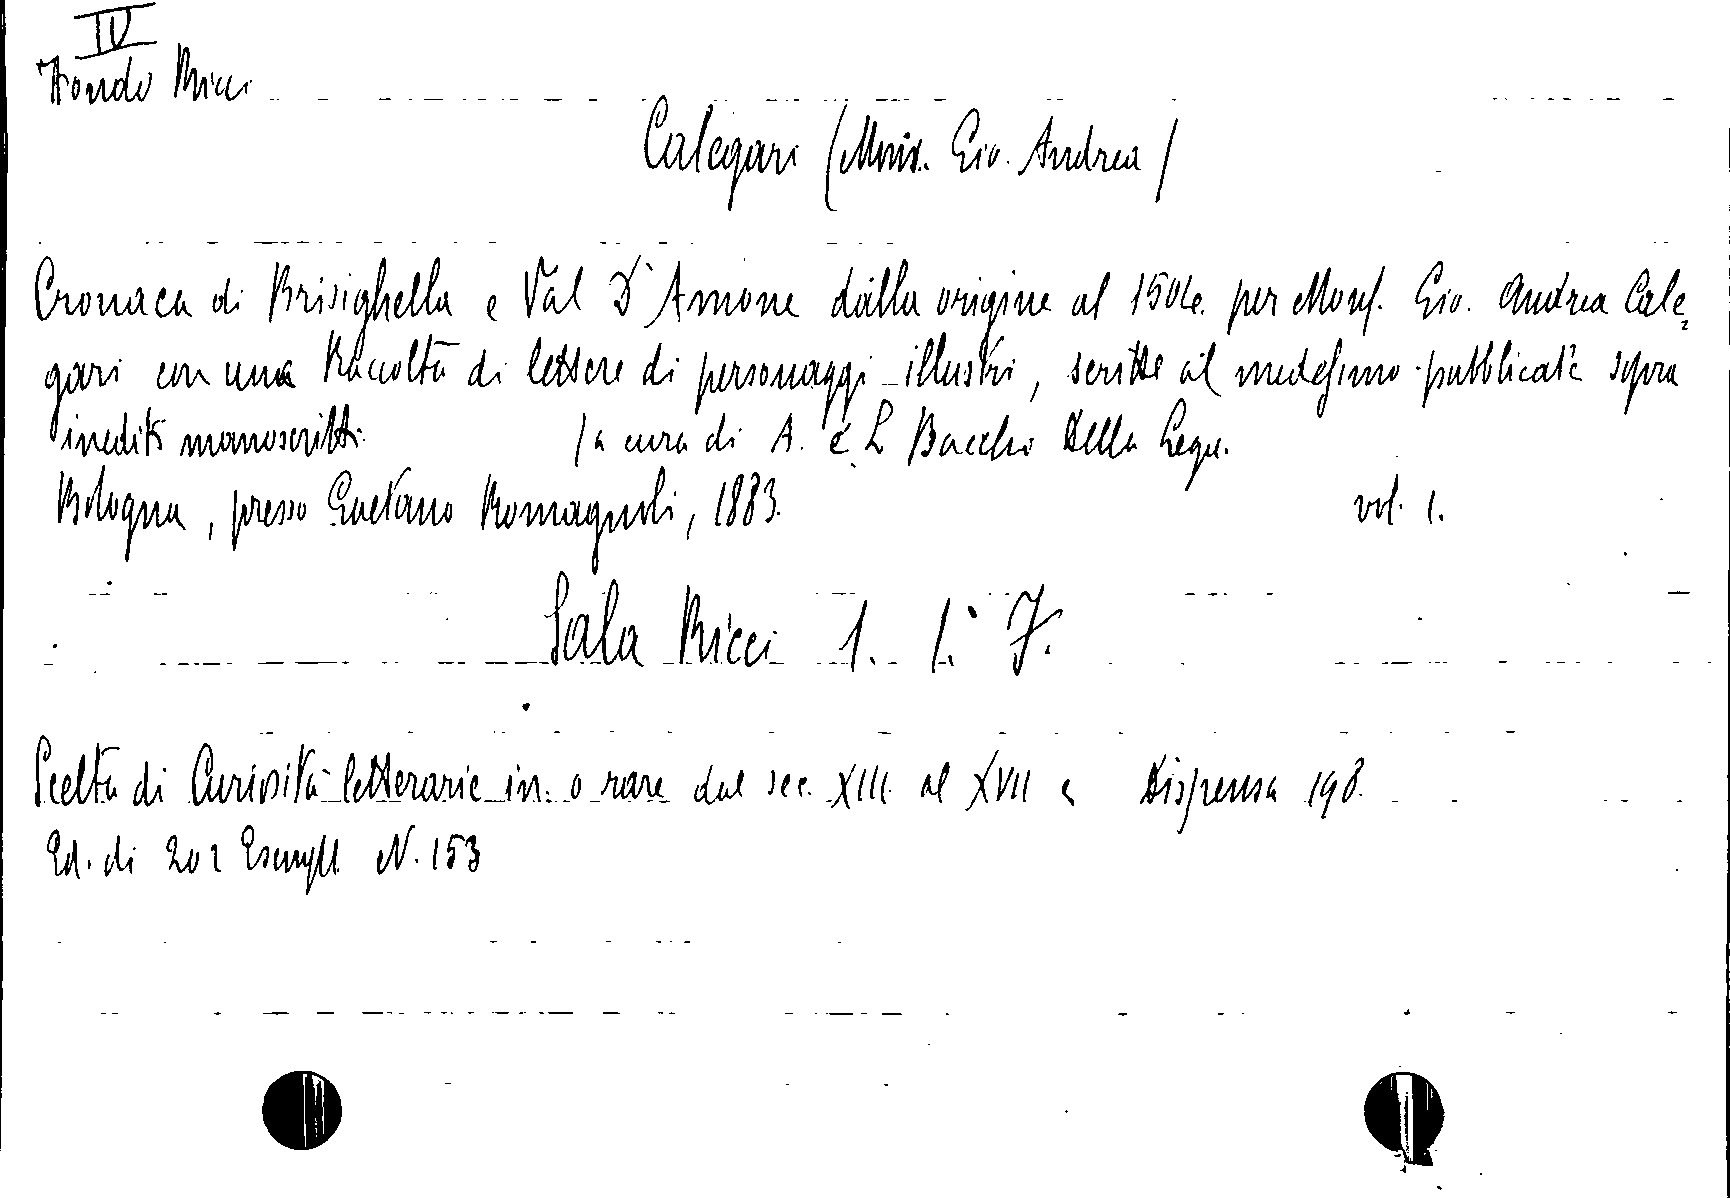 IV
Fondo Ricci
Calegari (Mons. Gio. Andrea)
Cronaca di Brisighella e Val D'Amone dalla origine al 1504. per Mons. Gio. Andrea Cale=
gari con una Raccolta di lettere di personaggi illustri, scritte al medesimo pubblicate sopra
inediti manoscritti. (a cura di A. e L Bacchi Della Lega.
Bologna, presso Gaetano Romagnoli, 1883. vol. 1.
Sala Ricci 1. 1. 7.
Scelta di Curiosità letterarie in. o rare dal sec. XIII al XVII Dispensa 198.
Ed. di 202 Esempl. N. 153